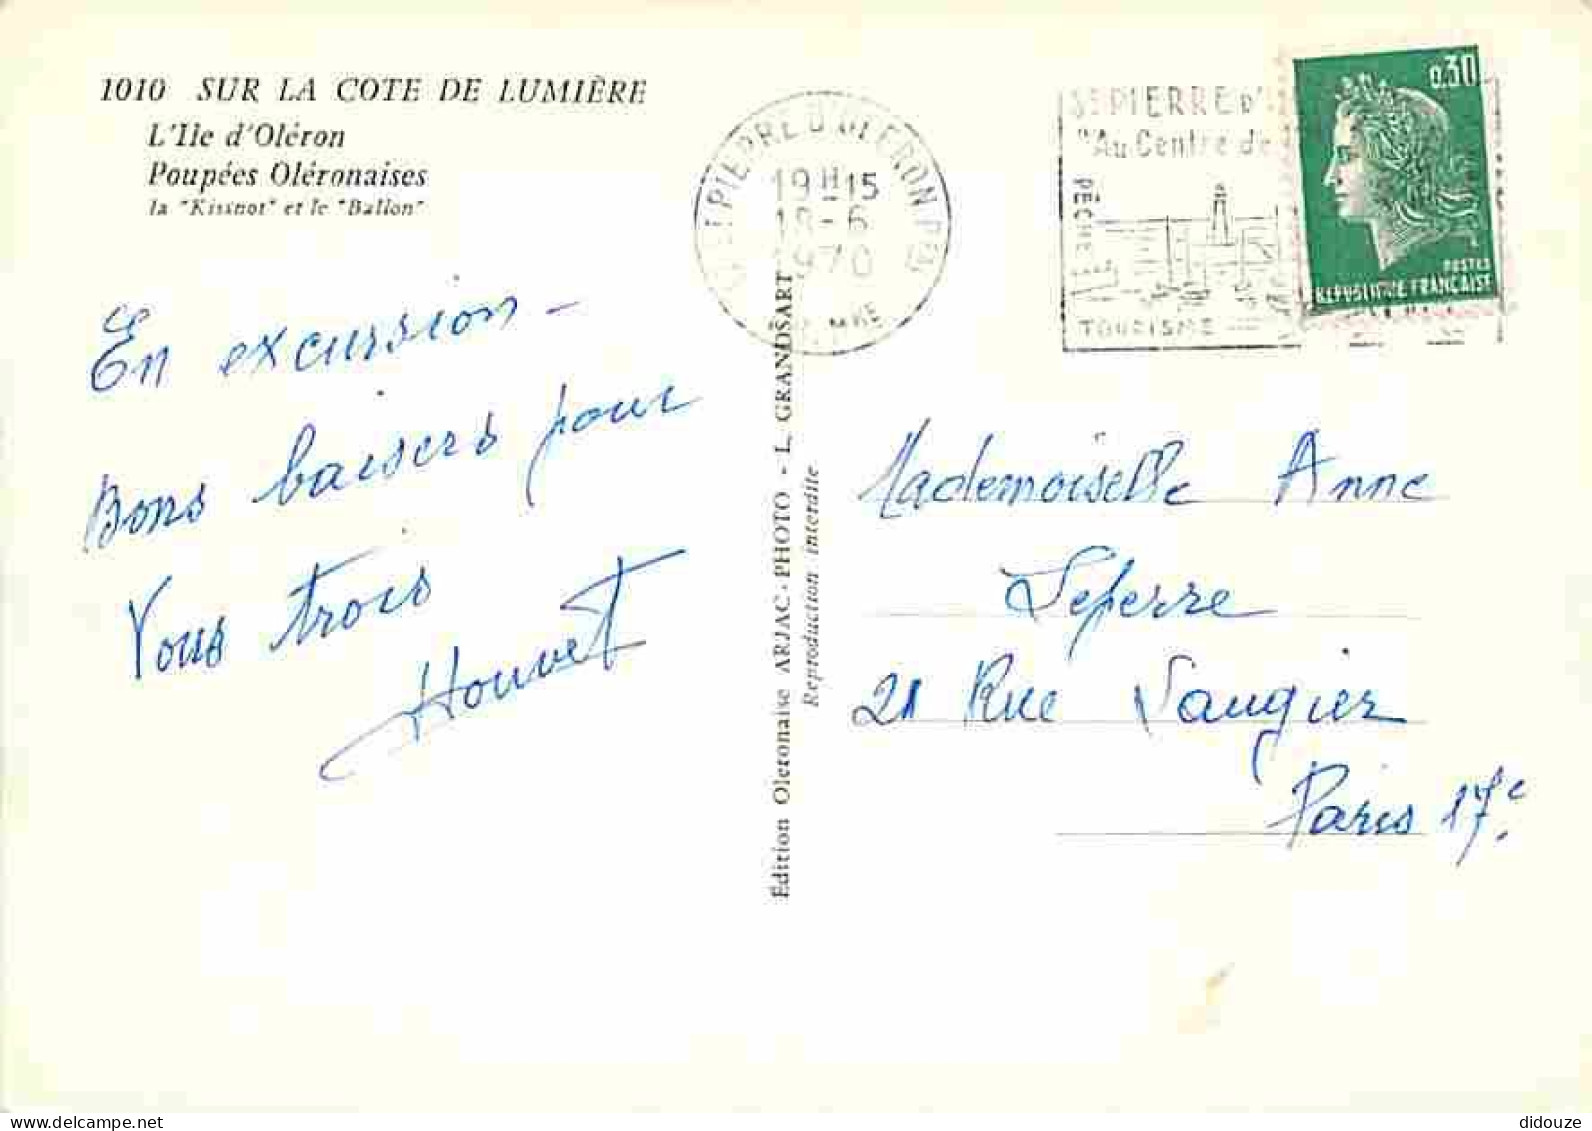 1010 SUR LA COTE DE LUMIÈRE
L'Ile d'Oléron
Poupées Oléronaises
la "Kissnot" et le "Ballon"
En excursion -
Bons baisers pour
Vous trois
Houvet
Édition Oleronaise ARJAC-PHOTO - L. GRANDSART
Reproduction interdite
ST PIERRE D'OLERON
19H15
18-6
1970
MME
ST PIERRE D'
"Au Centre de
PÊCHE
TOURISME
0,30
POSTES
REPUBLIQUE FRANÇAISE
Mademoiselle Anne
Leferre
21 Rue Saugier
Paris 17e.
delcampe.net
didouze